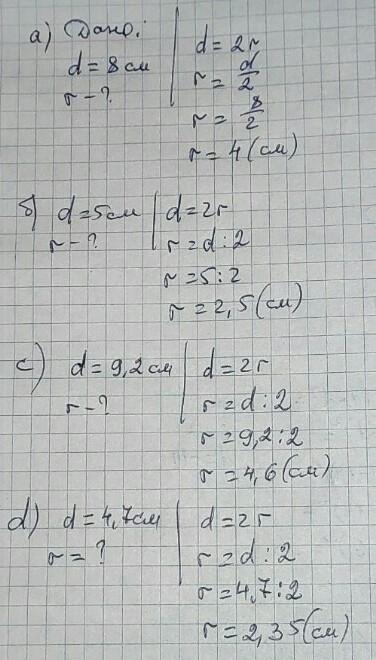 а) Дано:
d = 8 см
r - ?
d = 2r
r = d/2
r = 8/2
r = 4 (см)
б) d = 5 см
r - ?
d = 2r
r = d : 2
r = 5 : 2
r = 2,5 (см)
c) d = 9,2 см
r - ?
d = 2r
r = d : 2
r = 9,2 : 2
r = 4,6 (см)
d) d = 4,7 см
r = ?
d = 2r
r = d : 2
r = 4,7 : 2
r = 2,35 (см)